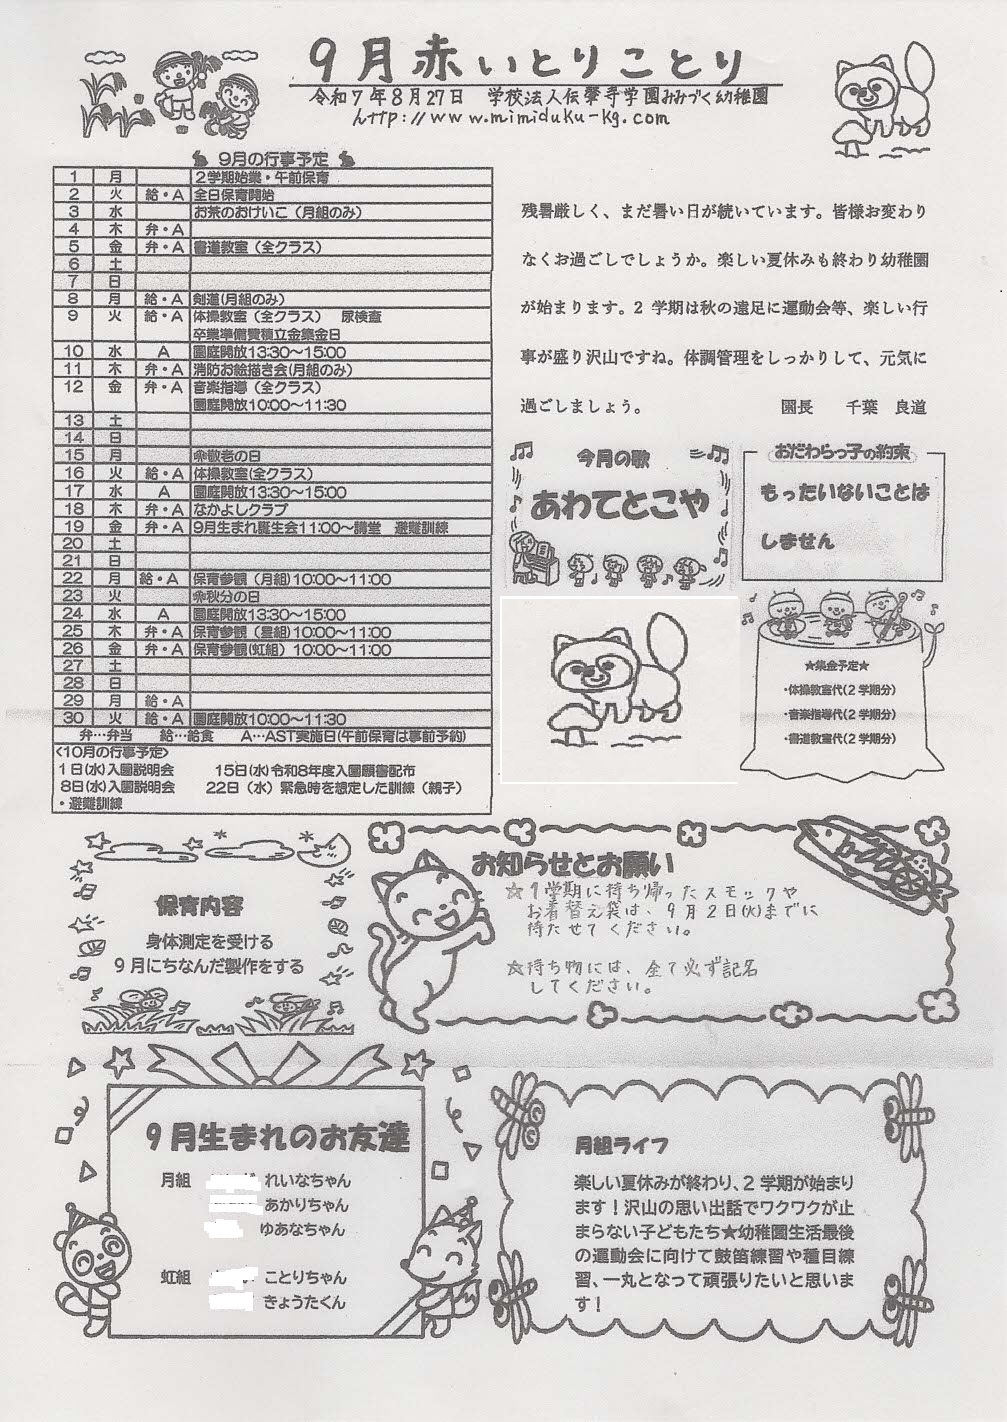 9月赤いとりことり
令和7年8月27日 学校法人伝肇寺学園みみづく幼稚園
http://www.mimiduku-kg.com
9月の行事予定
1 月 2学期始業・午前保育
2 火 給・A 全日保育開始
3 水 お茶のおけいこ(月組のみ)
4 木 弁・A
5 金 弁・A 書道教室(全クラス)
6 土
7 日
8 月 給・A 剣道(月組のみ)
9 火 給・A 体操教室(全クラス) 尿検査
卒業準備費積立金集金日
10 水 A 園庭開放13:30~15:00
11 木 弁・A 消防お絵描き会(月組のみ)
12 金 弁・A 音楽指導(全クラス)
園庭開放10:00~11:30
13 土
14 日
15 月 ※敬老の日
16 火 給・A 体操教室(全クラス)
17 水 A 園庭開放13:30~15:00
18 木 弁・A なかよしクラブ
19 金 弁・A 9月生まれ誕生会11:00~講堂 避難訓練
20 土
21 日
22 月 給・A 保育参観(月組)10:00~11:00
23 火 ※秋分の日
24 水 A 園庭開放13:30~15:00
25 木 弁・A 保育参観(星組)10:00~11:00
26 金 弁・A 保育参観(虹組)10:00~11:00
27 土
28 日
29 月 給・A
30 火 給・A 園庭開放10:00~11:30
弁…弁当 給…給食 A…AST実施日(午前保育は事前予約)
<10月の行事予定>
1日(水)入園説明会 15日(水)令和8年度入園願書配布
8日(水)入園説明会 22日(水)緊急時を想定した訓練(親子)
・避難訓練
残暑厳しく、まだ暑い日が続いています。皆様お変わり
なくお過ごしでしょうか。楽しい夏休みも終わり幼稚園
が始まります。2学期は秋の遠足に運動会等、楽しい行
事が盛り沢山ですね。体調管理をしっかりして、元気に
過ごしましょう。 園長 千葉 良道
今月の歌
あわてとこや
おだわらっ子の約束
もったいないことは
しません
★集金予定★
・体操教室代(2学期分)
・音楽指導代(2学期分)
・書道教室代(2学期分)
保育内容
身体測定を受ける
9月にちなんだ製作をする
お知らせとお願い
☆1学期に持ち帰ったスモックや
お着替え袋は、9月2日(火)までに
持たせてください。
☆持ち物には、全て必ず記名
してください。
9月生まれのお友達
月組 れいなちゃん
あかりちゃん
ゆあなちゃん
虹組 ことりちゃん
きょうたくん
月組ライフ
楽しい夏休みが終わり、2学期が始まり
ます!沢山の思い出話でワクワクが止
まらない子どもたち★幼稚園生活最後
の運動会に向けて鼓笛練習や種目練
習、一丸となって頑張りたいと思いま
す!